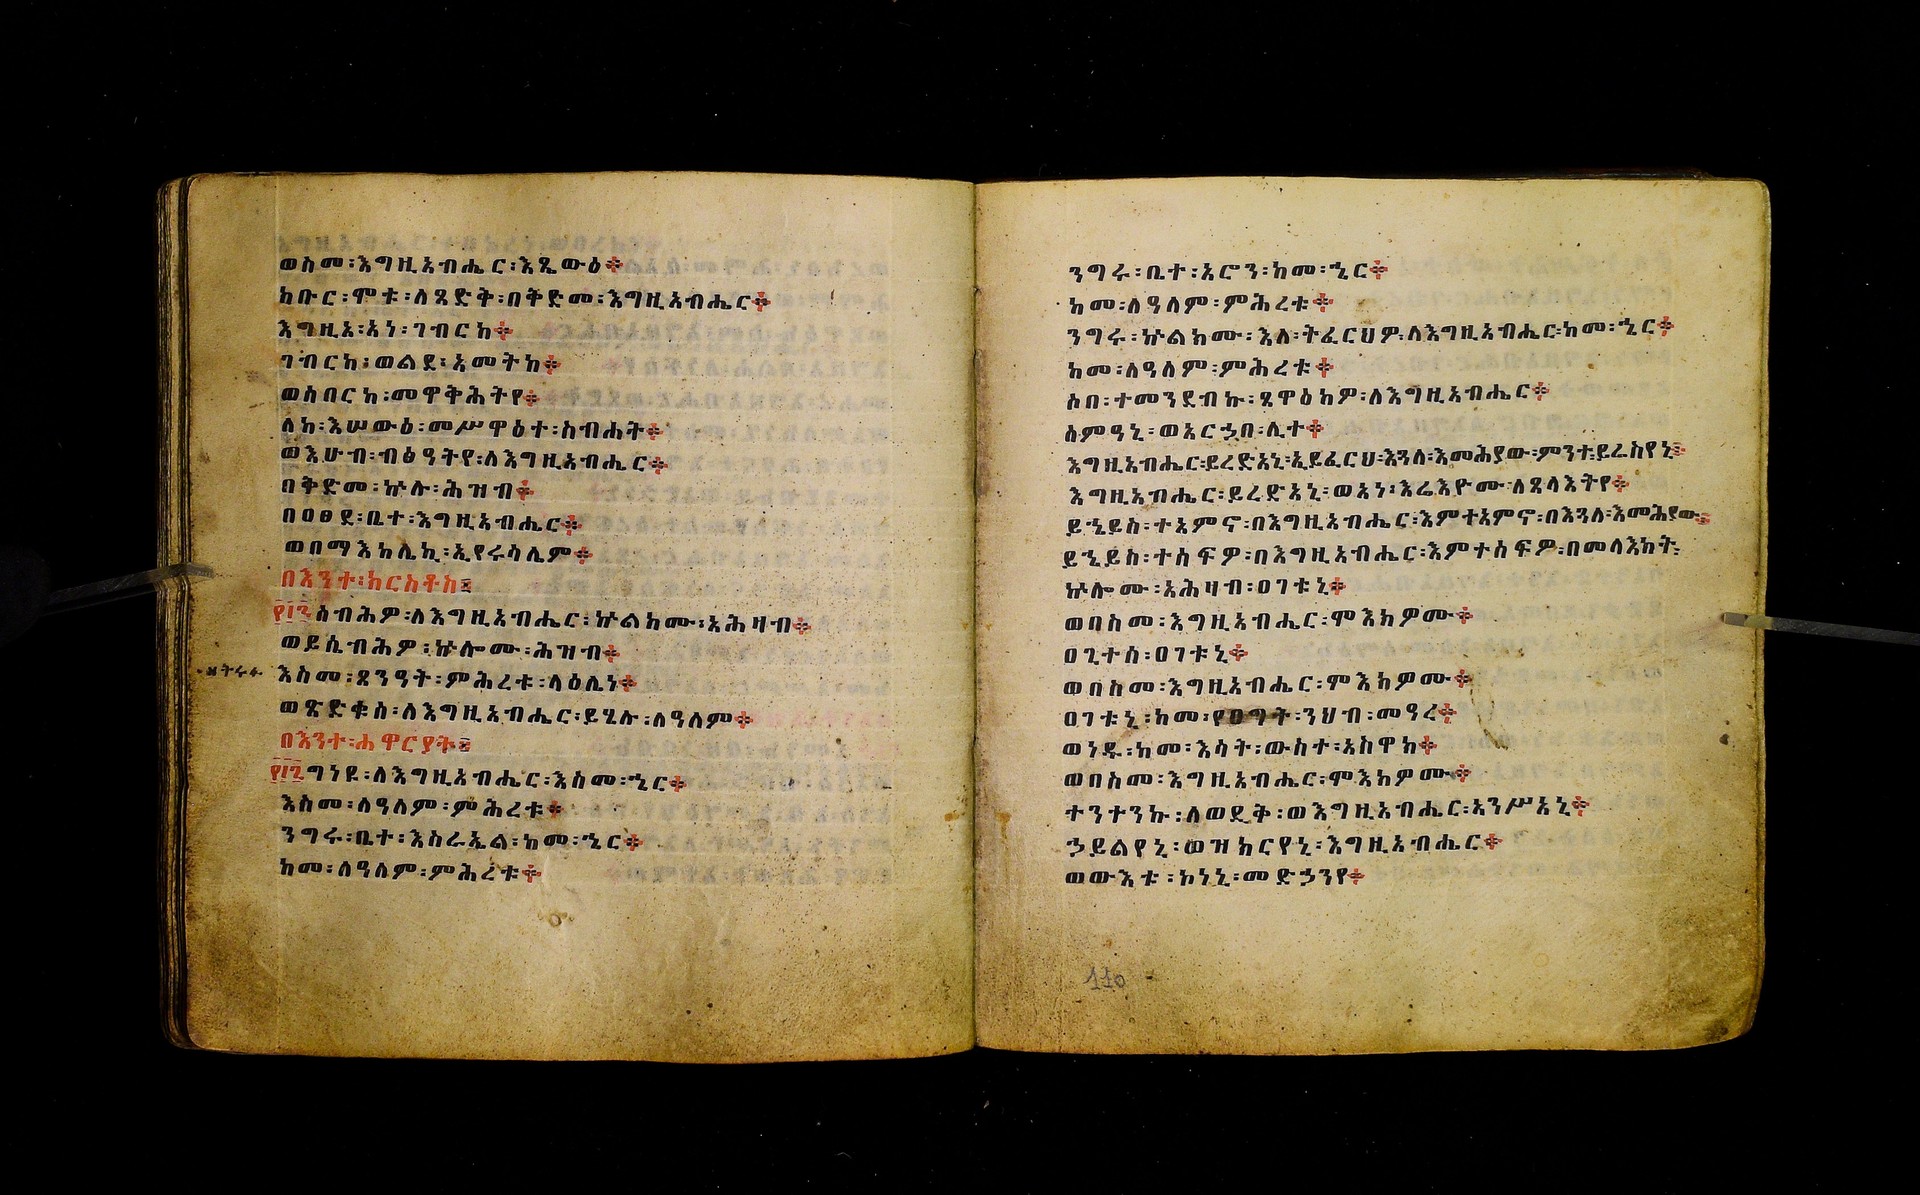 ወስመ፡እግዚአብሔር፡እጼውዕ፨
ክቡር፡ሞቱ፡ለጻድቅ፡በቅድመ፡እግዚአብሔር፨
እግዚአ፡አነ፡ገብርከ፨
ገብርከ፡ወልደ፡አመትከ፨
ወሰበርከ፡መዋቅሕትየ፨
ለከ፡እሠውዕ፡መሥዋዕተ፡ስብሐት፨
ወእሁብ፡ብፅዓትየ፡ለእግዚአብሔር፨
በቅድመ፡ኵሉ፡ሕዝብ፨
በዐፀደ፡ቤተ፡እግዚአብሔር፨
ወበማእከሌኪ፡ኢየሩሳሌም፨
በእንተ፡ክርስቶስ፡፡
፻፲፮ሰብሕዎ፡ለእግዚአብሔር፡ኵልክሙ፡አሕዛብ፨
ወይሴብሕዎ፡ኵሎሙ፡ሕዝብ፨
እስመ፡ጸንዓት፡ምሕረቱ፡ላዕሌነ፨
ወጽድቁስ፡ለእግዚአብሔር፡ይሄሉ፡ለዓለም፨
በእንተ፡ሐዋርያት፡፡
፻፲፯ግነዩ፡ለእግዚአብሔር፡እስመ፡ኄር፨
እስመ፡ለዓለም፡ምሕረቱ፨
ንግሩ፡ቤተ፡እስራኤል፡ከመ፡ኄር፨
ከመ፡ለዓለም፡ምሕረቱ፨
ንግሩ፡ቤተ፡አሮን፡ከመ፡ኄር፨
ከመ፡ለዓለም፡ምሕረቱ፨
ንግሩ፡ኵልክሙ፡እለ፡ትፈርህዎ፡ለእግዚአብሔር፡ከመ፡ኄር፨
ከመ፡ለዓለም፡ምሕረቱ፨
ሶበ፡ተመንደብኩ፡ጸዋዕክዎ፡ለእግዚአብሔር፨
ሰምዓኒ፡ወአርኃበ፡ሊተ፨
እግዚአብሔር፡ይረድአኒ፡ኢይፈርህ፡እጓለ፡እመሕያው፡ምንተ፡ይሬስየኒ፨
እግዚአብሔር፡ይረድአኒ፡ወአነ፡እሬእዮሙ፡ለጸላእትየ፨
ይኄይስ፡ተአምኖ፡በእግዚአብሔር፡እምተአምኖ፡በእጓለ፡እመሕያው፨
ይኄይስ፡ተስፍዎ፡በእግዚአብሔር፡እምተስፍዎ፡በመላእክት፡
ኵሎሙ፡አሕዛብ፡ዐገቱኒ፨
ወበስመ፡እግዚአብሔር፡ሞእክዎሙ፨
ዐጊተሰ፡ዐገቱኒ፨
ወበስመ፡እግዚአብሔር፡ሞእክዎሙ፨
ዐገቱኒ፡ከመ፡የዐግት፡ንህብ፡መዓረ፨
ወነዱ፡ከመ፡እሳት፡ውስተ፡አስዋክ፨
ወበስመ፡እግዚአብሔር፡ሞእክዎሙ፨
ተንተንኩ፡ለወዲቅ፡ወእግዚአብሔር፡አንሥአኒ፨
ኃይልየኒ፡ወዝክርየኒ፡እግዚአብሔር፨
ወውእቱ፡ኮነኒ፡መድኃንየ፨
110